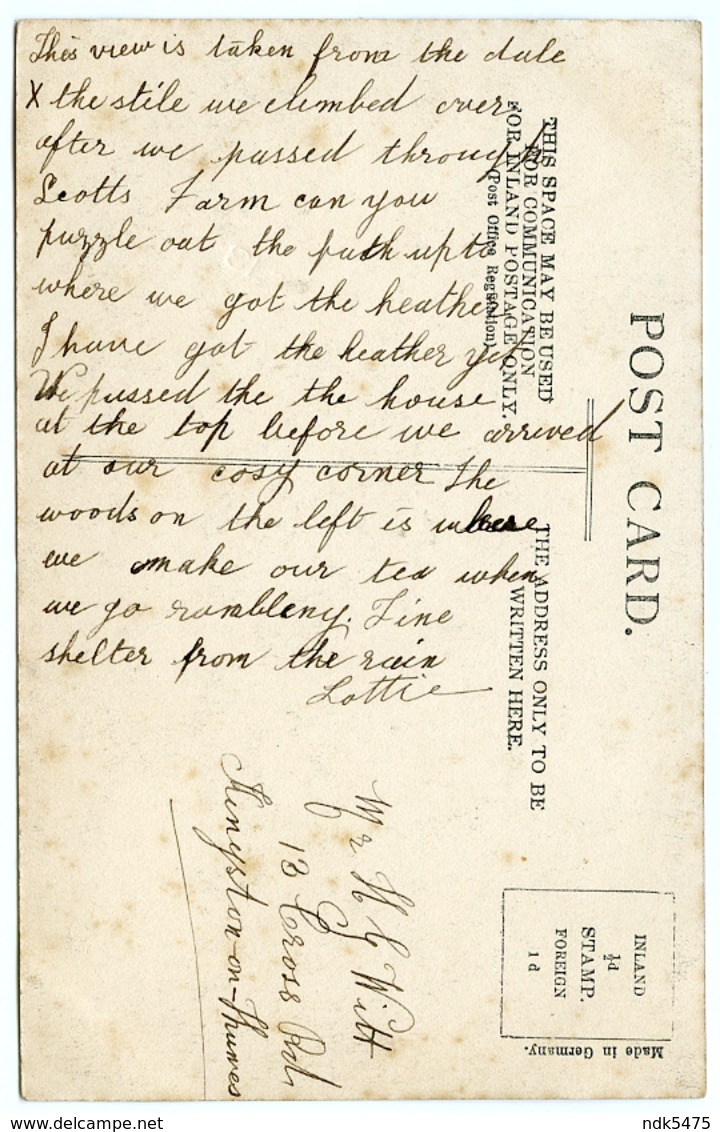 This view is taken from the dale
X the stile we climbed over
after we passed through
Scotts Farm can you
puzzle out the path up to
where we got the heather
I have got the heather yet
We passed the the house
at the top before we arrived
at our cosy corner The
woods on the left is where
we make our tea when
we go rambleny. Fine
shelter from the rain
Lottie
Mr H G Witt
13 Cross Rd
Kingston-on-Thames
POST CARD.
THIS SPACE MAY BE USED
FOR COMMUNICATION
FOR INLAND POSTAGE ONLY.
(Post Office Regulation)
THE ADDRESS ONLY TO BE
WRITTEN HERE.
INLAND
½d
STAMP.
FOREIGN
1d
Made in Germany.
Delcampe.net
ndk5475